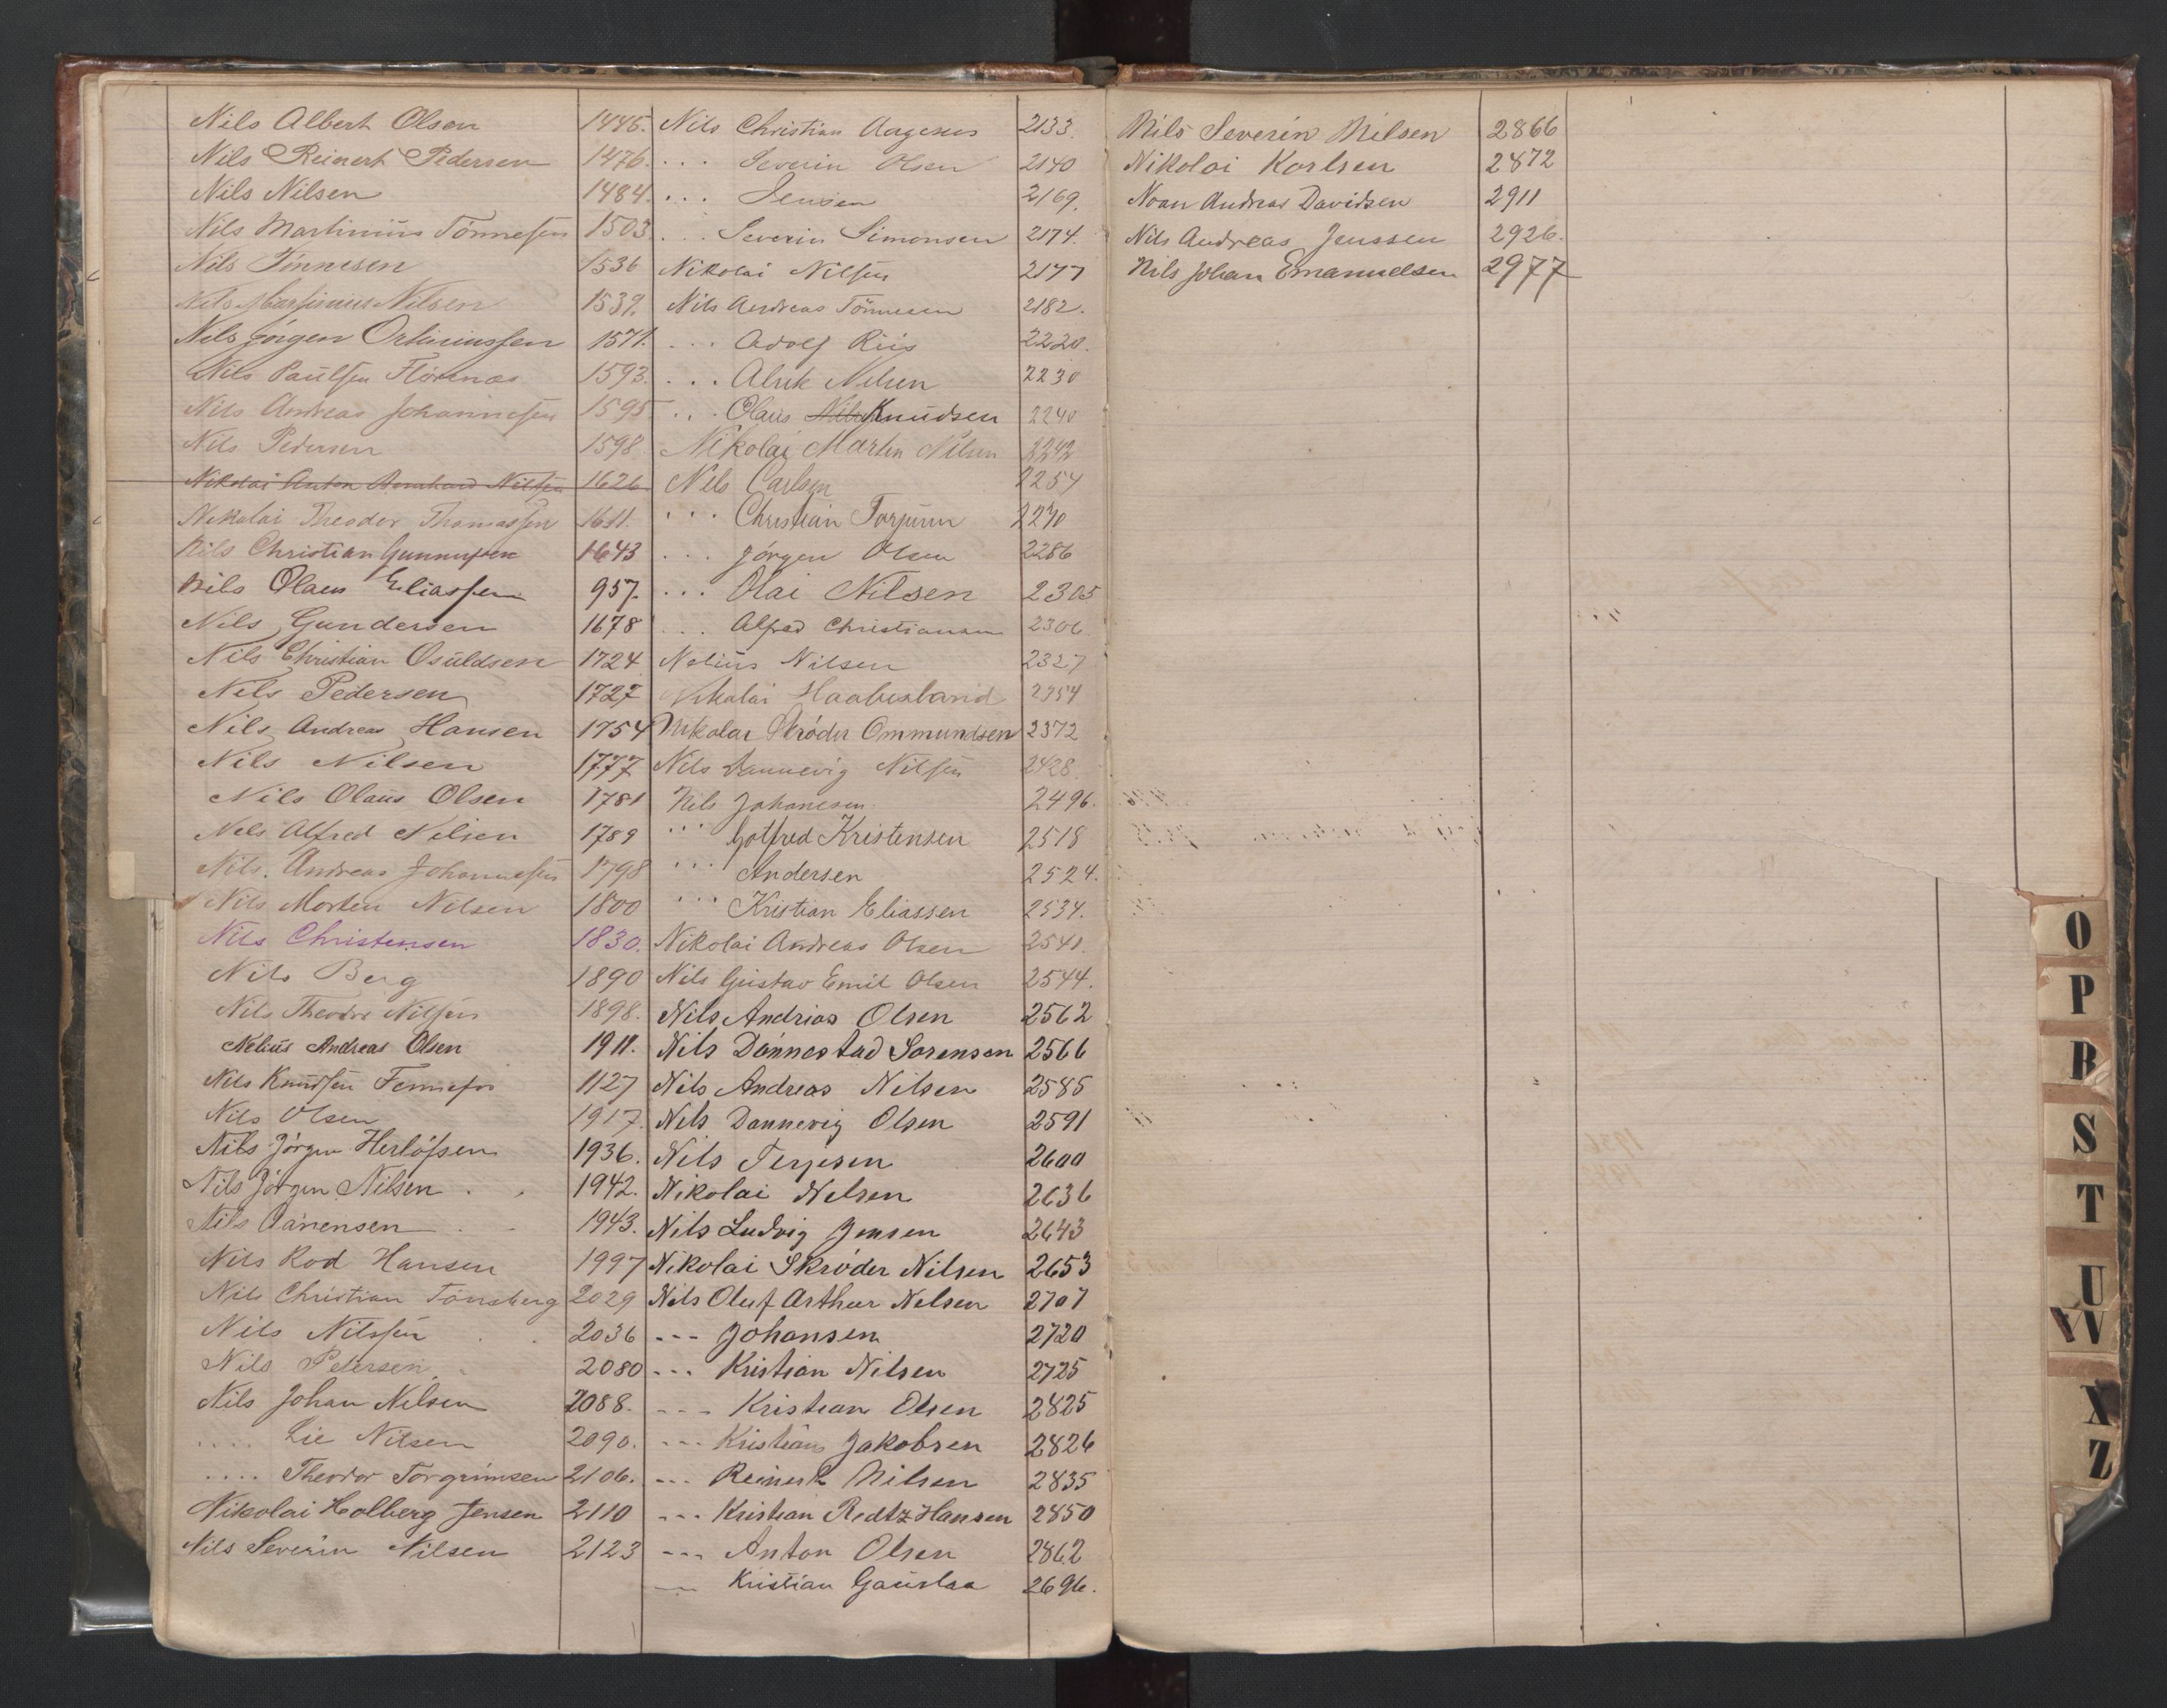 Nils Albert Olsen 1445.
Nils Reinert Pedersen 1476.
Nils Nilsen 1484.
Nils Martinius Tönnesen 1503.
Nils Tönnesen 1536
Nils Martinius Nilsen 1539.
Nils Jörgen 1571.
Nils Paulsen 1593.
Nils Andreas Johannesen 1595
Nils Pedersen 1598
Nikolai Anton Bernhard Nilsen 1626
Nikolai Theodor Thomassen 1611.
Nils Christian Gunnufsen 1643
Nils Olaus Eliassen 957.
Nils Gundersen 1678
Nils Christian Osuldsen 1724
Nils Pedersen 1727
Nils Andreas Hansen 1754
Nils Nilsen 1777
Nils Olaus Olsen 1781
Nils Alfred Nilsen 1789
Nils. Andreas Johannessen 1798
Nils Morten Nilsen 1800
Nils Christensen 1830.
Nils Berg 1890
Nils Theodor Nilsen 1898.
Nelius Andreas Olsen 1911.
Nils Knudsen 1127
Nils Olsen 1917.
Nils Jörgen Herlöfsen 1936.
Nils Jörgen Nilsen . . 1942.
Nils 1943.
Nils Rod Hansen 1997
Nils Christian Tönsberg 2029
Nils Nilssen 2036
Nils Petersen 2080
Nils Johan Nilsen 2088.
.... Lie Nilsen 2090.
.... Theodor Torgrimsen 2106.
Nikolai Holberg Jensen 2110
Nils Severin Nilsen 2123
Nils Christian Aagesen 2133.
... Severin Olsen 2140
... Jensen 2169.
... Severin Simonsen 2174.
Nikolai Nilsen 2177
Nils Andreas Tönnesen 2182.
... Adolf Riis 2220.
... Alrik Nilsen 2230
... Olaus Nils Knudsen 2240
Nikolai Martin Nilsen 2242
Nils Carlsen 2254
... Christian 2270
... Jörgen Olsen 2286
... Olai Nilsen 2305
... Alfred Christiansen 2306
Nelius Nilsen 2327
Nikolai Haabesland 2354
Nikolai Skröder Ommundsen 2372
Nils Dannevig Nilsen 2428.
Nils Johanesen 2496.
... Gotfred Kristensen 2518
... Andersen 2524.
... Kristian Eliassen 2534.
Nikolai Andreas Olsen 2541.
Nils Gustav Emil Olsen 2544.
Nils Andrias Olsen 2562
Nils Dannestad Sorensen 2566
Nils Andreas Nilsen 2585
Nils Dannevig Olsen 2591
Nils Terjesen 2600
Nikolai Nilsen 2636
Nils Ludvig Jensen 2643
Nikolai Skröder Nilsen 2653
Nils Oluf Arthur Nilsen 2707
--- Johansen 2720
--- Kristian Nilsen 2725
--- Kristian Olsen 2825
--- Kristian Jakobsen 2826
--- Reinert Nilsen 2835
--- Kristian Redtz Hansen 2850
--- Anton Olsen 2862
--- Kristian Gauslaa 2696.
Nils Severin Nilsen 2866
Nikolai Karlsen 2872
Noan Andreas Davidsen 2911
Nils Andreas Jenssen 2926.
Nils Johan Emanuelsen 2977
O
P
R
S
T
U
W
X
Z